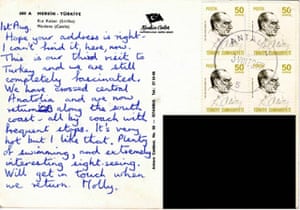 300 A MERSİN - TÜRKİYE
Kız Kalesi
1st Aug.
Hope your address is right -
I can't find it, here, now.
This is our third visit to
Turkey and we are still
completely fascinated.
We have crossed central
Anatolia and are now
returning along the south
coast - all by coach with
frequent stops. It's very
hot but I like that. Plenty
of swimming, and extremely
interesting sight-seeing.
Will get in touch when
we return. Molly.
Keskin Color
POSTA 50
TÜRKİYE CUMHURİYETİ
POSTA 50
TÜRKİYE CUMHURİYETİ
POSTA 50
TÜRKİYE CUMHURİYETİ
POSTA 50
TÜRKİYE CUMHURİYETİ